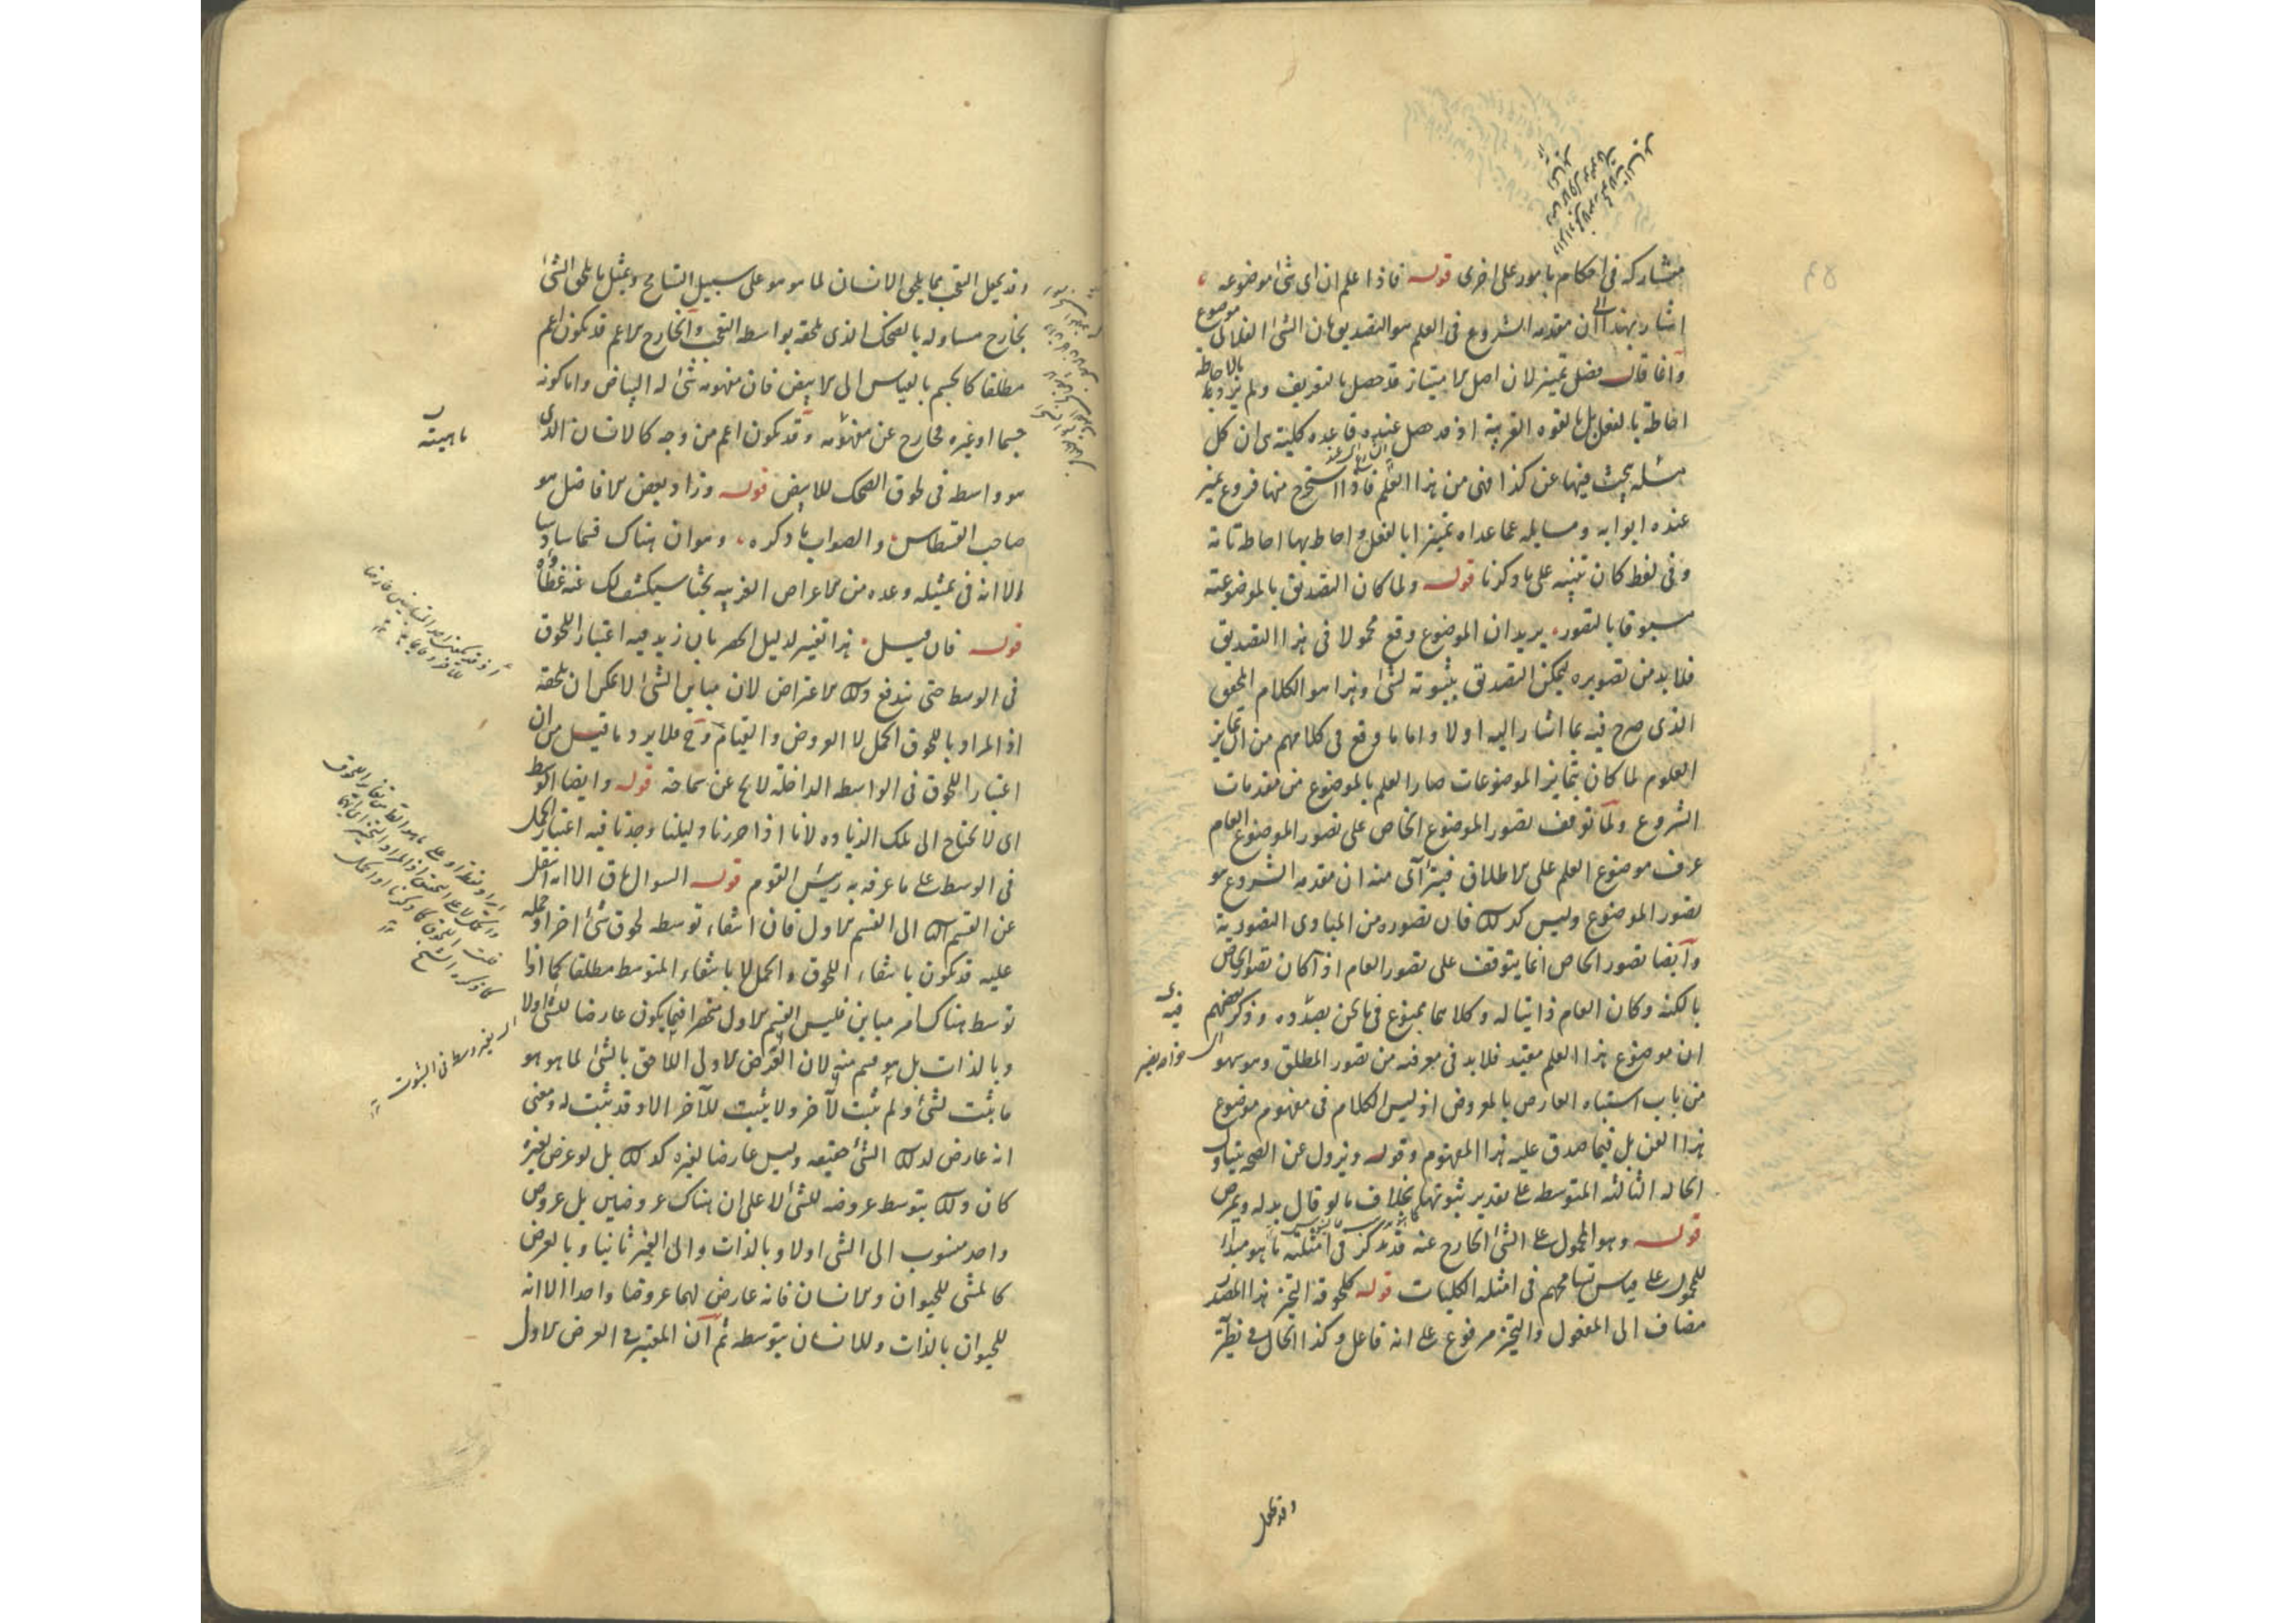 مشاركه فى احكام بامور على اخرى قوله فاذا علم ان اى شئ موضوعه
اشار بهذا الى ان مقدمه الشروع فى العلم هو التصديق بان الشئ الفلانى موضوع
وانما قال فضل تميز لان اصل الامتياز قد حصل بالتعريف ولم يرد بالاحاطة
احاطة بالفعل بل بالقوه القريبة اذ قد حصل عنده قاعده كلية هى ان كل
مسئله يبحث فيها عن كذا فهى من هذا العلم فاذا استخرج منها فروع تميز
عنده ابوابه ومسايله عما عداه تميزا بالفعل واحاط بها احاطة تامة
وفى لفظ كان تنبيه على ما ذكرنا قوله ولما كان التصديق بالموضوعية
مسبوقا بالتصور يريد ان الموضوع وقع محمولا فى هذا التصديق
فلابد من تصويره ليمكن التصديق بثبوته لشئ وهذا هو الكلام المحقق
الذى صرح فيه بما اشار اليه اولا واما ما وقع فى كلامهم من ان تمايز
العلوم لما كان بتمايز الموضوعات صار العلم بالموضوع من مقدمات
الشروع ولما توقف تصور الموضوع الخاص على تصور الموضوع العام
عرف موضوع العلم على الاطلاق فيتراآى منه ان مقدمه الشروع هو
تصور الموضوع وليس كذلك فان تصوره من المبادى التصورية
وايضا تصور الخاص انما يتوقف على تصور العام اذا كان تصور الخاص
بالكنه وكان العام ذاتيا له وكلاهما ممنوع فى ما نحن بصدده وذكر بعضهم
ان موضوع هذا العلم مقيد فلابد فى معرفته من تصور المطلق وهو سهو
من باب اشتباه العارض بالمعروض اذ ليس الكلام فى مفهوم موضوع
هذا الفن بل فيما صدق عليه هذا المفهوم وقوله ويزول عن الصحة يتناول
الحاله الثالثه المتوسطه على تقدير ثبوتها بخلاف ما لو قال بدله ويمرض
قوله وهو المحمول على الشئ الخارج عنه قد يذكر فى امثلته ما هو مبدأ
للمحمول على قياس تسامحهم فى امثله الكليات قوله كلحوقه التحيز هذا المصدر
مضاف الى المفعول والتحيز مرفوع على انه فاعل وكذا الحال فى نظيره
وقد يجعل
وقد يجعل التعجب مما يلحق الانسان لما هو هو على سبيل التسامح ويمثل ما يلحق الشئ
بخارج مساو له بالضحك الذى يلحقه بواسطه التعجب والخارج الاعم قد يكون اعم
مطلقا كالجسم بالقياس الى الابيض فان مفهومه شئ له البياض واما كونه
جسما او غيره فخارج عن مفهومه وقد يكون اعم من وجه كالانسان الذى
هو واسطه فى لحوق الضحك للابيض قوله وزاد بعض الافاضل هو
صاحب القسطاس والصواب ما ذكره وهو ان هناك قسما سادسا
الا انه فى تمثيله وعده من الاعراض الغريبه بحثا سيكشف لك عنه غطاؤه
قوله فان قيل هذا تغيير لدليل الحصر بان زيد فيه اعتبار اللحوق
فى الوسط حتى يندفع ذلك الاعتراض لان مباين الشئ لا يمكن ان يلحقه
اذ المراد باللحوق الحمل لا العروض والقيام وح فلا يرد وما قيل من ان
اعتبار اللحوق فى الواسطه الداخلة لا يخ عن سماجة قوله وايضا الوسط
اى لا نحتاج الى تلك الزياده لانا اذا حررنا دليلنا وجدنا فيه اعتبار الحمل
فى الوسط على ما عرفه به رئيس القوم قوله السوال باق الا انه انتقل
عن القسم الثالث الى القسم الاول فان انتفاء توسطه لحوق شئ اخر او حمله
عليه قد يكون بانتفاء اللحوق والحمل لا بانتفاء المتوسط مطلقا كما اذا
توسط هناك امر مباين فليس القسم الاول منحصرا فيما يكون عارضا للشئ اولا
وبالذات بل هو قسم منه لان العرض الاولى اللاحق بالشئ لما هو هو
ما يثبت لشئ ولم يثبت لآخر ولا يثبت للآخر الا وقد ثبت له ومعنى
انه عارض لذلك الشئ حقيقه وليس عارضا لغيره كذلك بل لو عرض لغيره
كان ذلك بتوسط عروضه للشئ لا على ان هناك عروضين بل عروض
واحد منسوب الى الشئ اولا وبالذات والى الغير ثانيا وبالعرض
كالمشى للحيوان والانسان فانه عارض لهما عروضا واحدا الا انه
للحيوان بالذات وللانسان بتوسطه ثم ان المعتبر فى العرض الاول
ماهيته